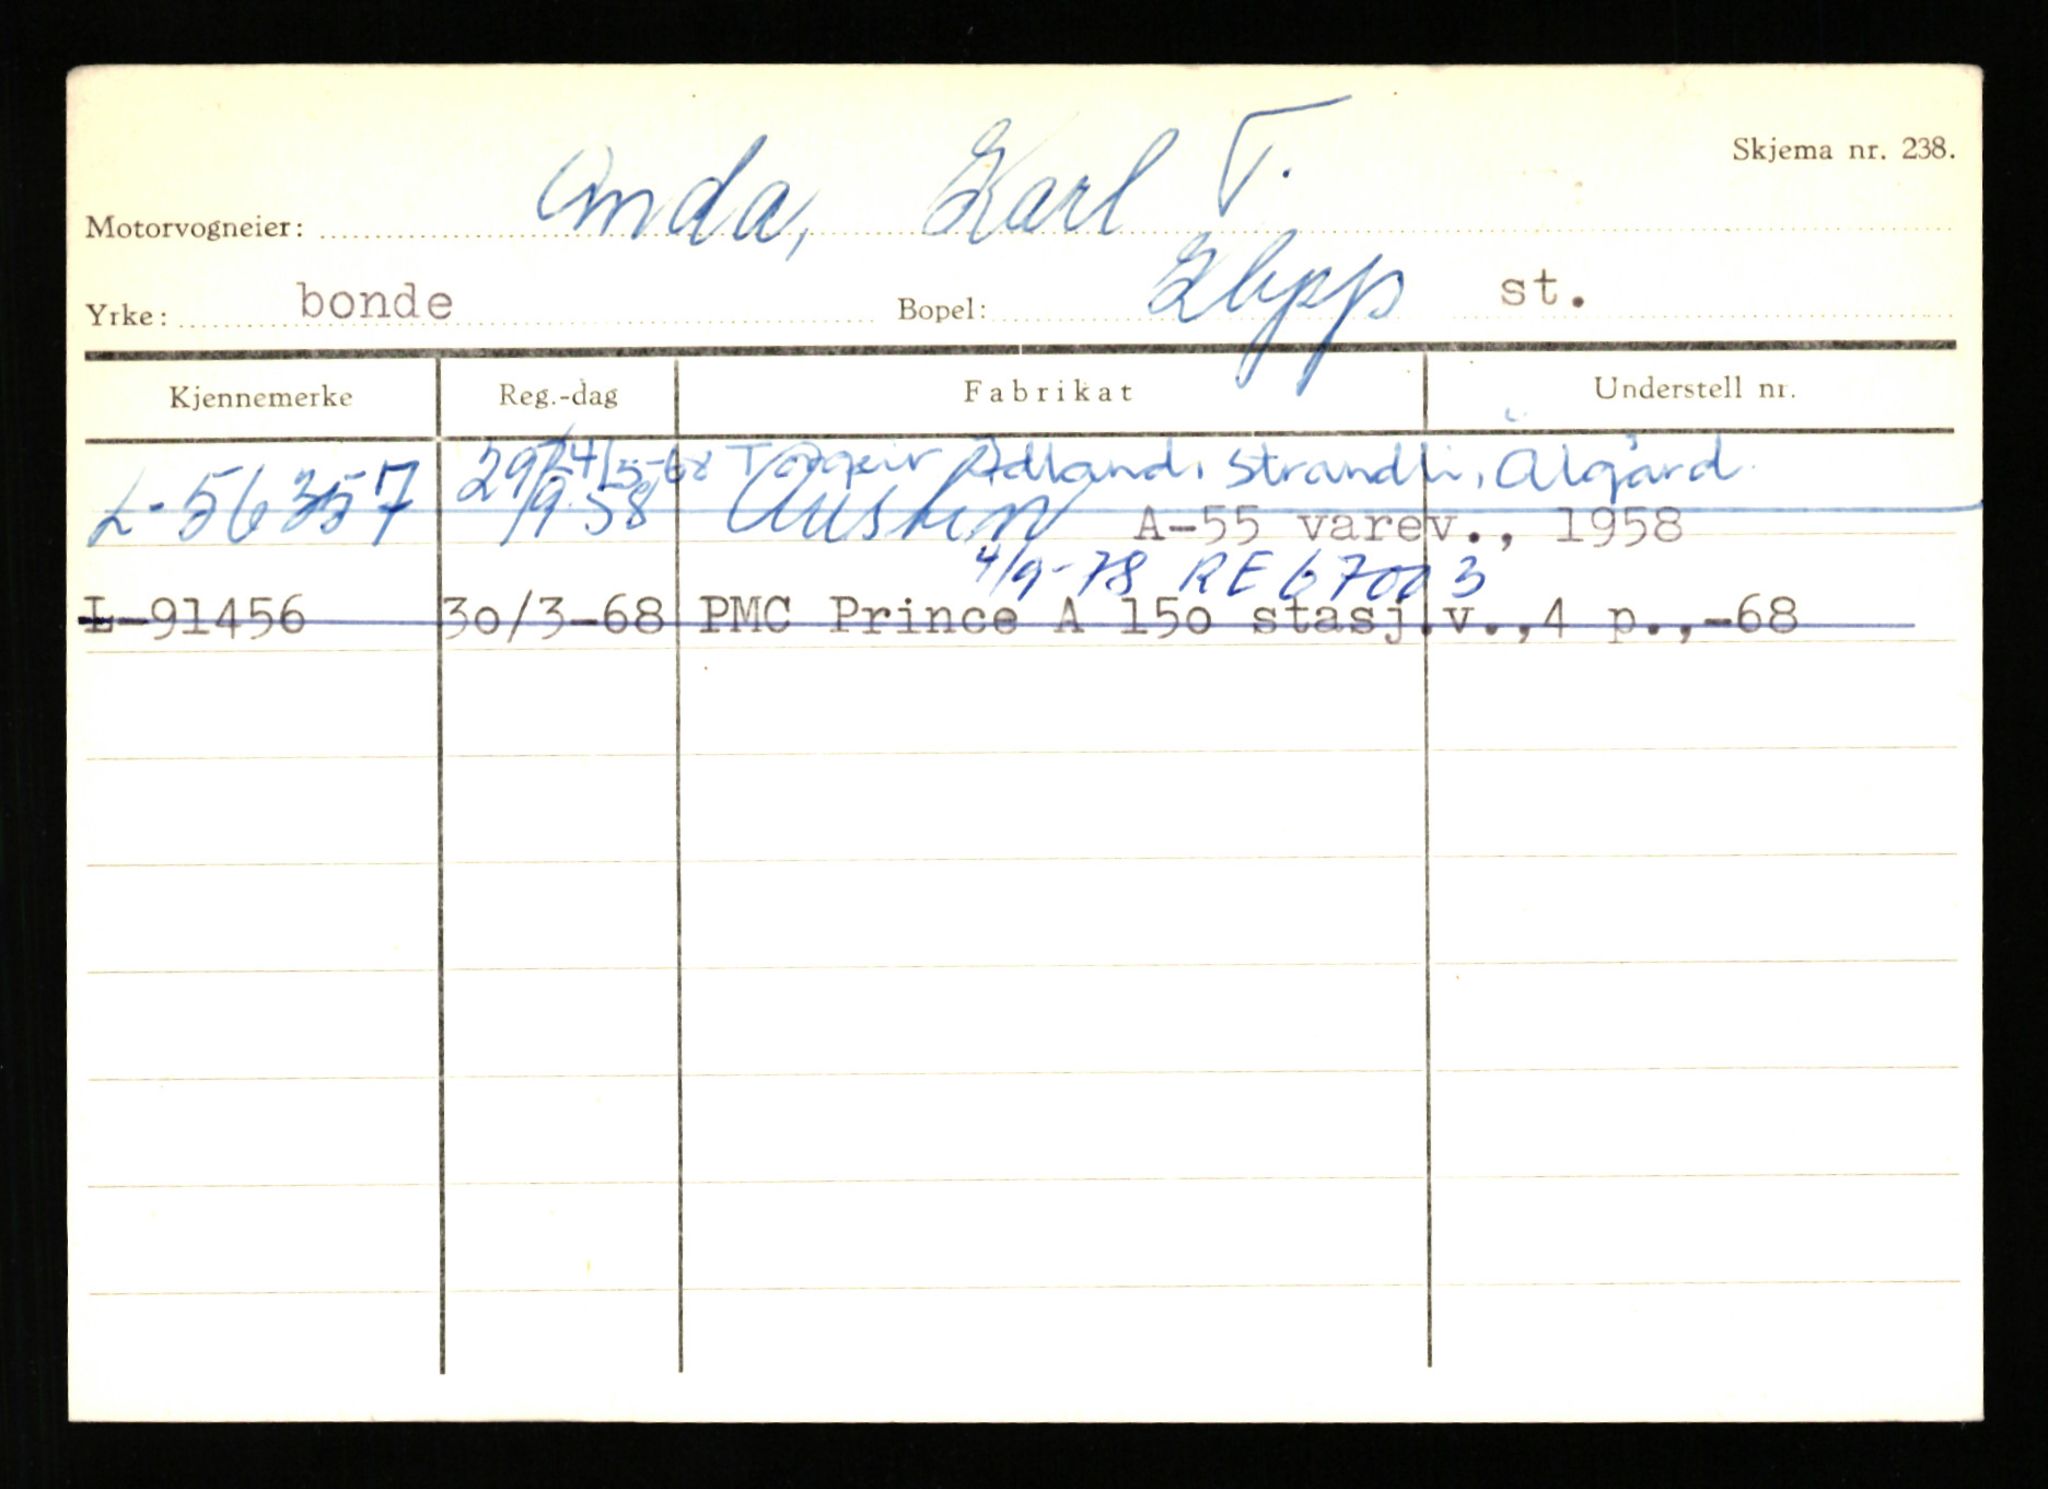 Skjema nr. 238.
Motorvogneier: Onda, Karl T.
Yrke: bonde Bopel: Klepp st.
Kjennemerke Reg.-dag Fabrikat Understell nr.
24/5-68 Torgeir Ådland, Strandli, Ålgård.
L-56357 29/9.58 Austin A-55 varev., 1958
4/9-78 RE 67003
L-91456 30/3-68 PMC Prince A 150 stasj.v.,4 p.,-68